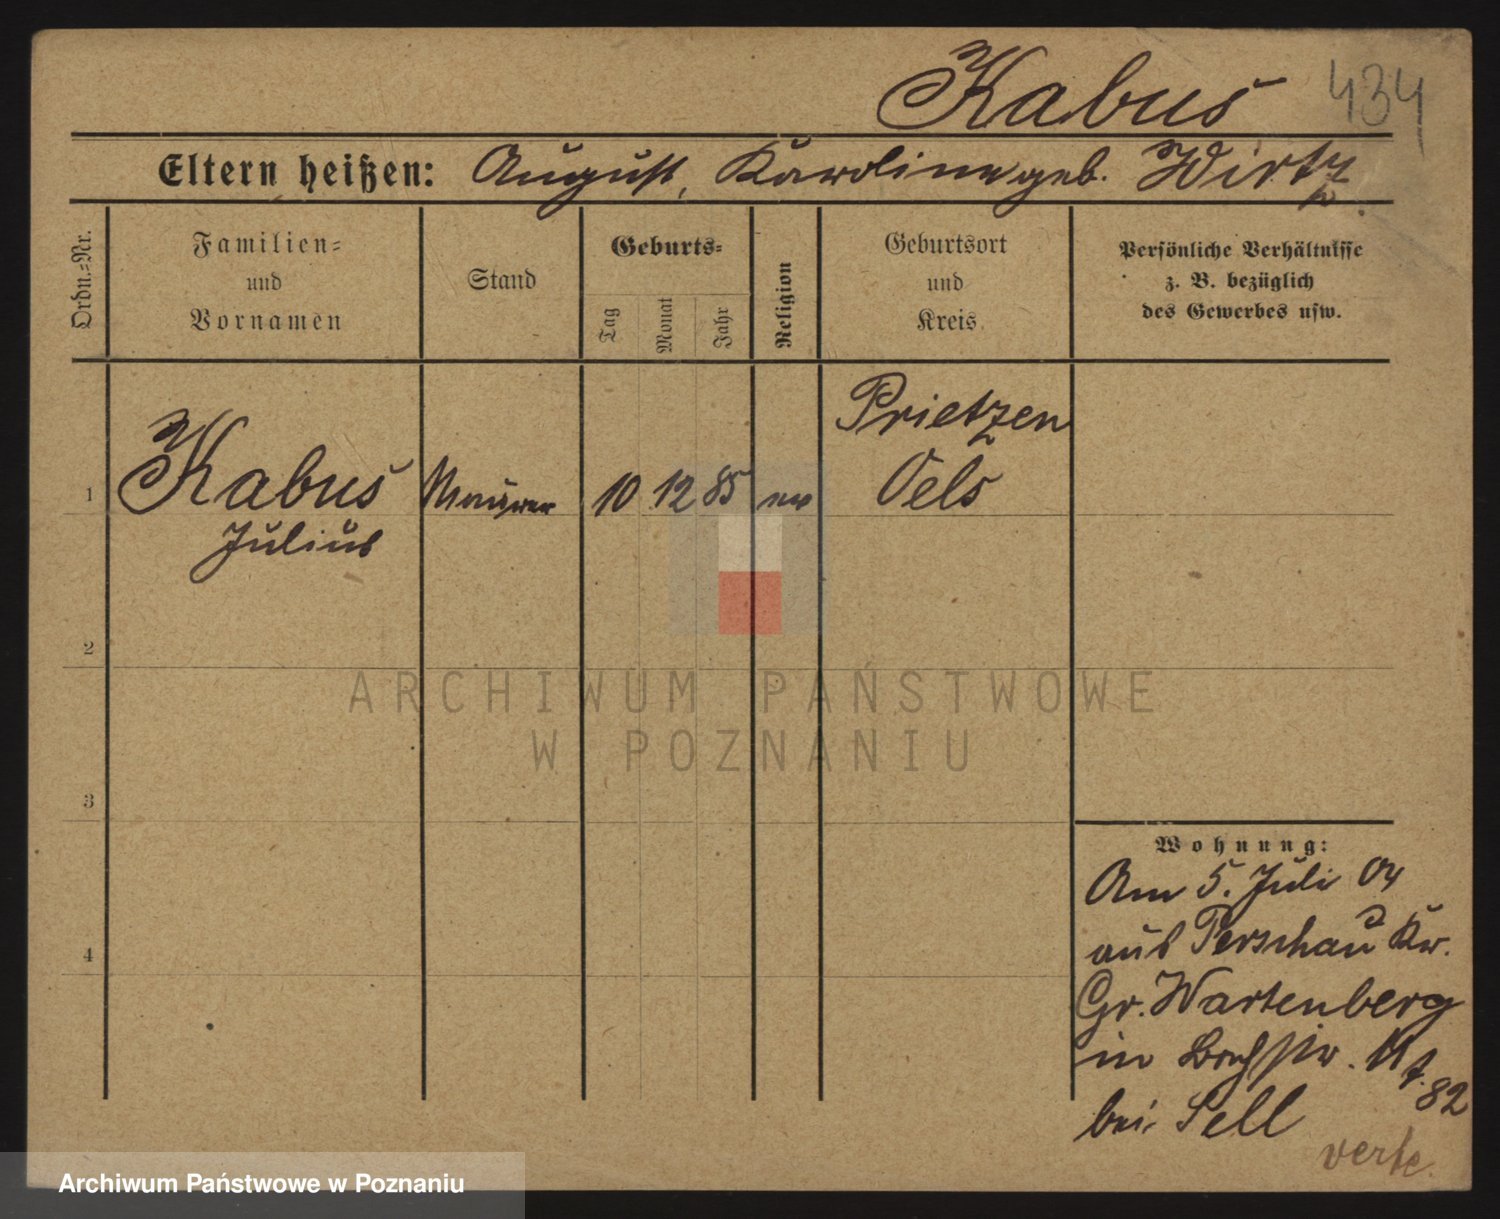 Kabus 434
Eltern heißen: August, Karoline geb. Wirtz.
Ordn.-Nr.
Familien-
und
Vornamen
Stand
Geburts-
Tag
Monat
Jahr
Religion
Geburtsort
und
Kreis
Persönliche Verhältnisse
z. B. bezüglich
des Gewerbes usw.
1
Kabus
Julius
Maurer
10 12 85
ev
Prietzen
Oels
2
3
4
ARCHIWUM PAŃSTWOWE
W POZNANIU
Wohnung:
Am 5. Juli 04
aus Perschau Kr.
Gr. Wartenberg
in
82
bei Sell
verte.
Archiwum Państwowe w Poznaniu